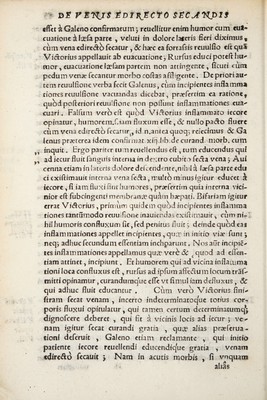 DE VENIS E DIRECTO SECANDIS
esset à Galeno confirmatum; reuellitur enim humor cum euacuatione
à læsa parte, veluti in dolore lateris fieri dicimus,
cùm vena edirectò secatur, & hæc ea fortassis reuulsio est quã
Victorius appellauit ab euacuatione, Rufus educi potest humor,
euacuatione læsam partem non attingente, sicuti cùm
pedum venæ secantur morbo costas affligente. De priori autem
reuulsione verba fecit Galenus, cùm incipientes inflammationes
reuulsione vacuandas dicebat, præsertim ea ratione,
quòd posteriori reuulsione non possunt inflammationes euacuari.
Falsum verò est quòd Victorius inflammato iecore
opinatur, humorem
cùm vena edirectò secatur
Galenus præterea idem confirmat
inquit. Ergo pariter tum reuellendus est, tum educendus qui
ad iecur fluit sanguis interna in dextro cubito secta vena; Aui
cenna etiam in lateris dolore
ci existimauit interna vena secta, multò minus igitur educet à
iecore, si iam fluxit
nior est subcingenti membranæ quàm hæpati. Bifariam igitur
errat Victorius, primùm quidem quòd incipientes inflammationes
tantũmodo reuulsione inaniendas existimauit, cùm nihil
humoris confluxum sit, sed penitus fluit; deinde quòd eas
inflammationes appellet incipientes, quæ in initio siue sunt;
neq; adhuc secundum essentiam inchoarunt. Nos aũt incipientes
inflammationes appellamus quæ verè &, quod ad essentiam
attinet, incipiunt. Et humorem qui ad vicina inflammationi
loca confluxus est, rursus ad ipsum affectum locum trãsmitti
opinamur, curandumque esse vt simul iam defluxus, &
qui adhuc fluit educantur. Cùm verò Victorius sinistram
secat venam, incerto indeterminatoque totius corporis
fluxus opitulatur, qui tamen certum determinatumq;
dignoscere deberet, qui fit à vicinis locis ad iecur; venam
igitur secat curandi gratia, quæ alias præseruationi
deseruit, Galeno etiam reclamante, qui initio
patiente iecore reuellendi educendique gratia, venam
edirectò secauit; Nam in acutis morbis, si vnquam
aliàs